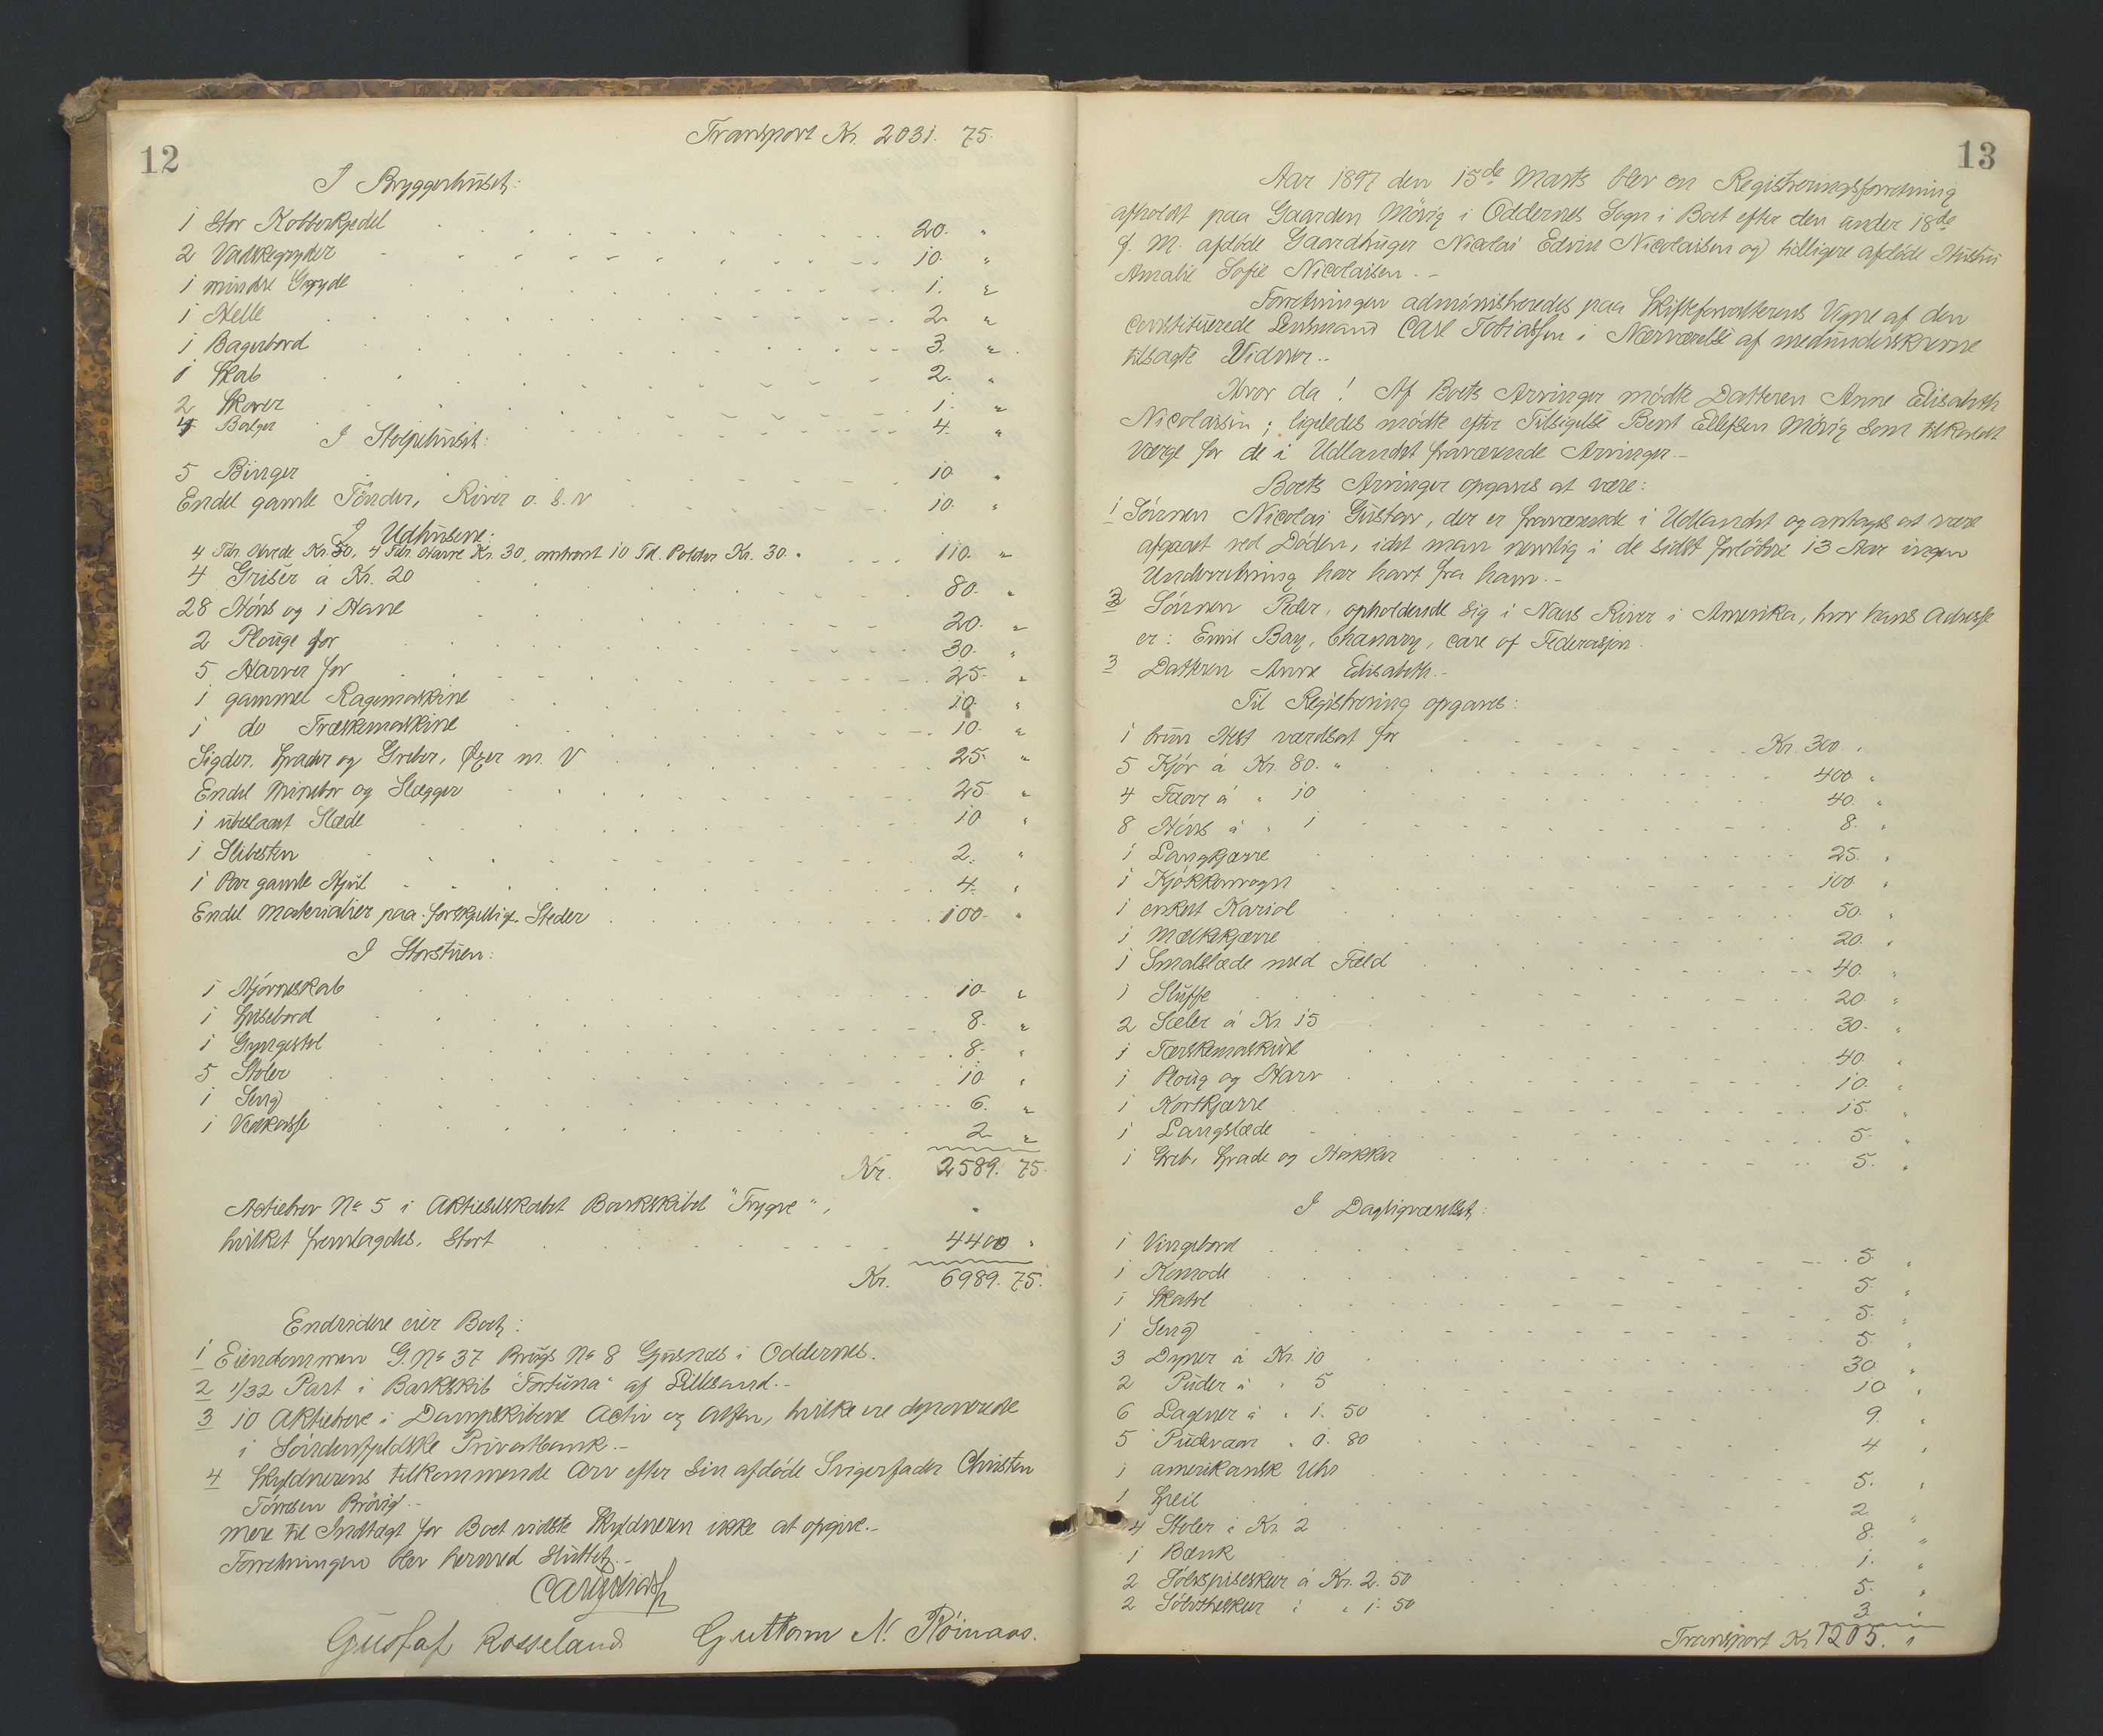 12
Transport Kr. 2031. 75.
I Bryggerhuset:
1 stor Kobberkjedel 20. "
2 Vadskegryder 10. "
1 mindre Gryde 1. "
1 Helle 2. "
1 Bagerbord 3. "
1 Skab 2. "
2 Skover 1. "
4 Balger 4. "
I Stolpehuset:
5 Binger 10 "
Endel gamle Tønder, River o. s. v 10. "
I Udhusene:
4 Tdr. Hvede Kr. 50, 4 Tdr Havre Kr. 30, omtrent 10 Td. Poteter Kr. 30. " 110. "
4 Griser á Kr. 20 80. "
28 Høns og 1 Hane 20. "
2 Plouge for 30. "
5 Harver for 25. "
1 gammel Ragemaskine 10. "
1 do Træskemaskine 10. "
Sigder, Spader og Greber, Øxer m. V 25. "
Endel Minebor og Slægger 25. "
1 ubeslaaet Slæde 10 "
1 Slibesten 2. "
1 Par gamle Hjul 4. "
Endel Materialier paa forskjellige Steder 100. "
I Storstuen:
1 Hjørneskab 10. "
1 Spisebord 8. "
1 Gyngestol 8. "
5 Stoler 10. "
1 Seng 6. "
1 Vedkasse 2. "
Kr. 2589. 75.
Actiebrev No 5 i Aktieselskabet Barkskibet "Trygve",
hvilket fremlagdes, Stort 4400 "
Kr. 6989. 75.
Endvidere eier Boet:
1 Eiendommen G. No 37 Brugs No 8 Gjusnæs i Oddernes.
2 1/32 Part i Barkskib "Fortuna" af Lillesand.-
3 10 Aktiebreve i Dampskibene Activ og , hvilke ere deponerede
i Søndenfjeldske Privatbank.-
4 Skyldnerens tilkommende Arv efter sin afdøde Svigerfader Christen
Tørresen Brøvig.-
Mere til Indtægt for Boet vidste Skyldneren ikke at opgive.-
Forretningen blev hermed sluttet.-
Carl Tobiassen
Gustaf Rosseland Guttorm N. Røinaas.
13
Aar 1897 den 15de Marts blev en Registreringsforretning
afholdt paa Gaarden Møvig i Oddernes Sogn i Boet efter den under 18de
f. M. afdøde Gaardbruger Nicolai Edvin Nicolaisen og tidligere afdøde Hustru
Amalie Sofie Nicolaisen.-
Forretningen administreredes paa Skifteforvalterens Vegne af den
constituerede Lensmand Carl Tobiassen i Nærværelse af medunderskrevne
tilsagte Vidner.-
Hvor da! Af Boets Arvinger mødte Datteren Anne Elisabeth
Nicolaisen; ligeledes mødte efter Tilsigelse Bent Ellefsen Møvig som tilkaldt
Værge for de i Udlandet fraværende Arvinger.-
Boets Arvinger opgaves at være:
1 Sønnen Nicolai Gustav, der er fraværende i Udlandet og antages at være
afgaaet ved Døden, idet man nemlig i de sidst forløbne 13 Aar ingen
Underretning har havt fra ham.-
2 Sønnen Peder, opholdende sig i Naas River i Amerika, hvor hans Adresse
er: Emil Bay, Chanary, care of Federasjon.
3 Datteren Anne Elisabeth.-
Til Registrering opgaves:
1 brun Hest værdsat for Kr. 300. "
5 Kjør á Kr. 80. " 400 "
4 Faar á " 10 40. "
8 Høns á " 1 8. "
1 Langkjærre 25. "
1 Kjøkkenvogn 100. "
1 enkelt Kariol 50. "
1 Mælkekjærre 20. "
1 Smalslæde med Fæld 40. "
1 Sluffe 20. "
2 Sæler á Kr. 15 30. "
1 Tærskemaskine 40. "
1 Ploug og Harv 10. "
1 Kortkjærre 15. "
1 Langslæde 5. "
1 Greb, Spade og Hakker 5. "
I Dagligværelset:
1 Vingebord 5. "
1 Komode 5. "
1 Skatol 5. "
1 Seng 5. "
3 Dyner á Kr. 10 30 "
2 Puder á " 5 10 "
6 Lagener á " 1. 50 9. "
5 Pudevaar " 0. 80 4 "
1 amerikansk Uhr 5. "
1 Speil 2 "
4 Stoler á Kr. 2 8. "
1 Bænk 1. "
2 Sølvspiseskeer á Kr. 2. 50 5. "
2 Sølvtheskeer " " 1. 50 3 "
Transport Kr 1205. "